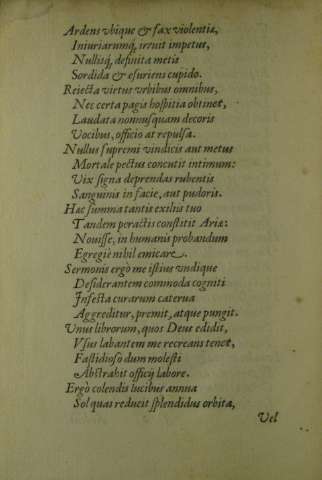 Ardens vbique & fax violentiæ,
Iniuriarumq́, irruit impetus,
Nullisq́, definita metis
Sordida & esuriens cupido.
Reiecta virtus vrbibus omnibus,
Nec certa pagis hospitia obtinet,
Laudata nonnusquam decoris
Vocibus, officio at repulsa.
Nullus supremi vindicis aut metus
Mortale pectus concutit intimum:
Vix signa deprendas rubentis
Sanguinis in facie, aut pudoris.
Hæc summa tantis exiliis tuo
Tandem peractis constitit Ariæ:
Nouisse, in humanis probandum
Egregiè nihil emicare.
Sermonis ergò me istius vndique
Desiderantem commoda cogniti
Insesta curarum caterua
Aggreditur, premit, atque pungit.
Vnus librorum, quos Deus edidit,
Vsus labantem me recreans tenet,
Fastidioso dum molesti
Abstrahit officij labore.
Ergò colendis lucibus annua
Sol quas reducit splendidus orbita,
Vel